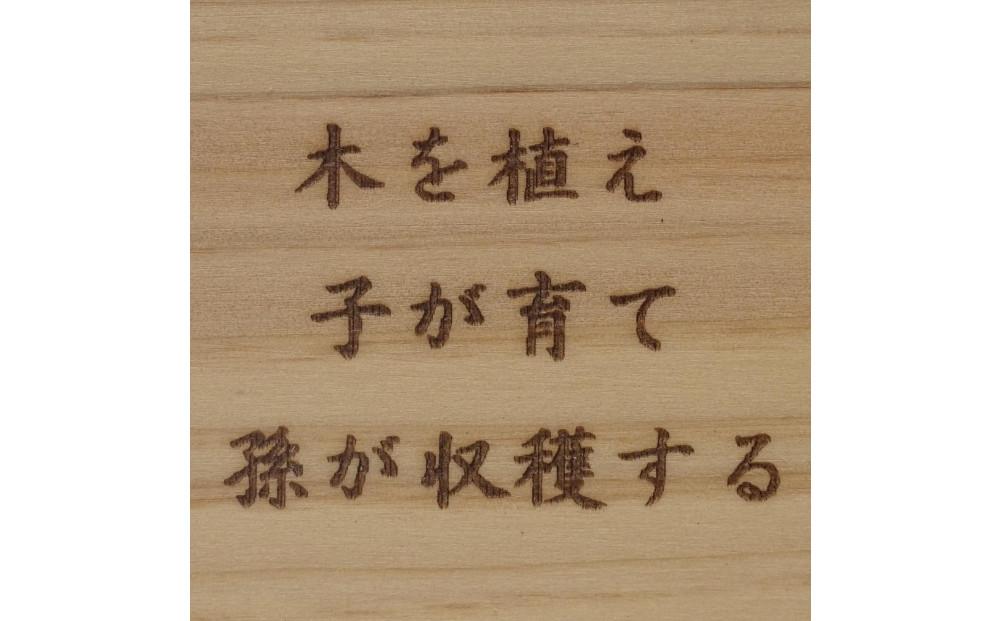 木を植え
子が育て
孫が収穫する